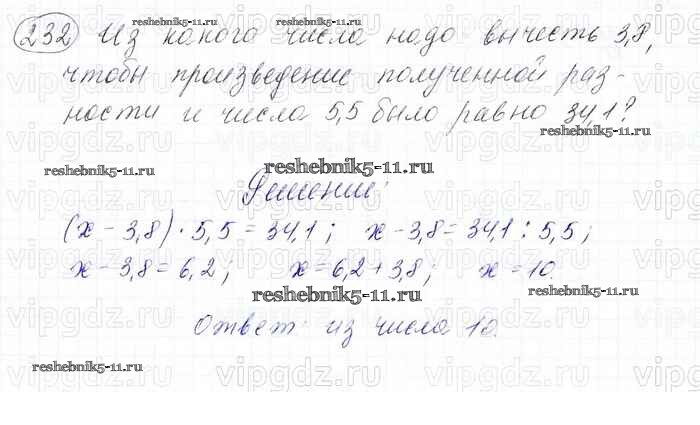 232 Из какого числа надо вычесть 3,8,
чтобы произведение полученной раз-
ности и числа 5,5 было равно 34,1?
Решение:
(х - 3,8) · 5,5 = 34,1; х - 3,8 = 34,1 : 5,5;
х - 3,8 = 6,2; х = 6,2 + 3,8; х = 10.
Ответ: из числа 10.
reshebnik5-11.ru
reshebnik5-11.ru
reshebnik5-11.ru
reshebnik5-11.ru
reshebnik5-11.ru
reshebnik5-11.ru
vipgdz.ru
vipgdz.ru
vipgdz.ru
vipgdz.ru
vipgdz.ru
vipgdz.ru